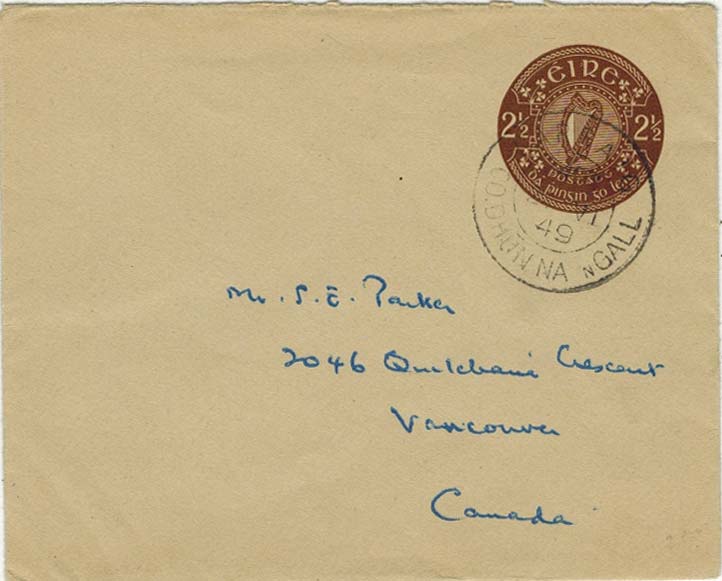 EIRE
2½ 2½
POSTAGE
Dá pinsin go leiṫ
VI
49
CO. DHÚN NA NGALL
Mr. S. E. Parker
2046 Crescent
Vancouver
Canada